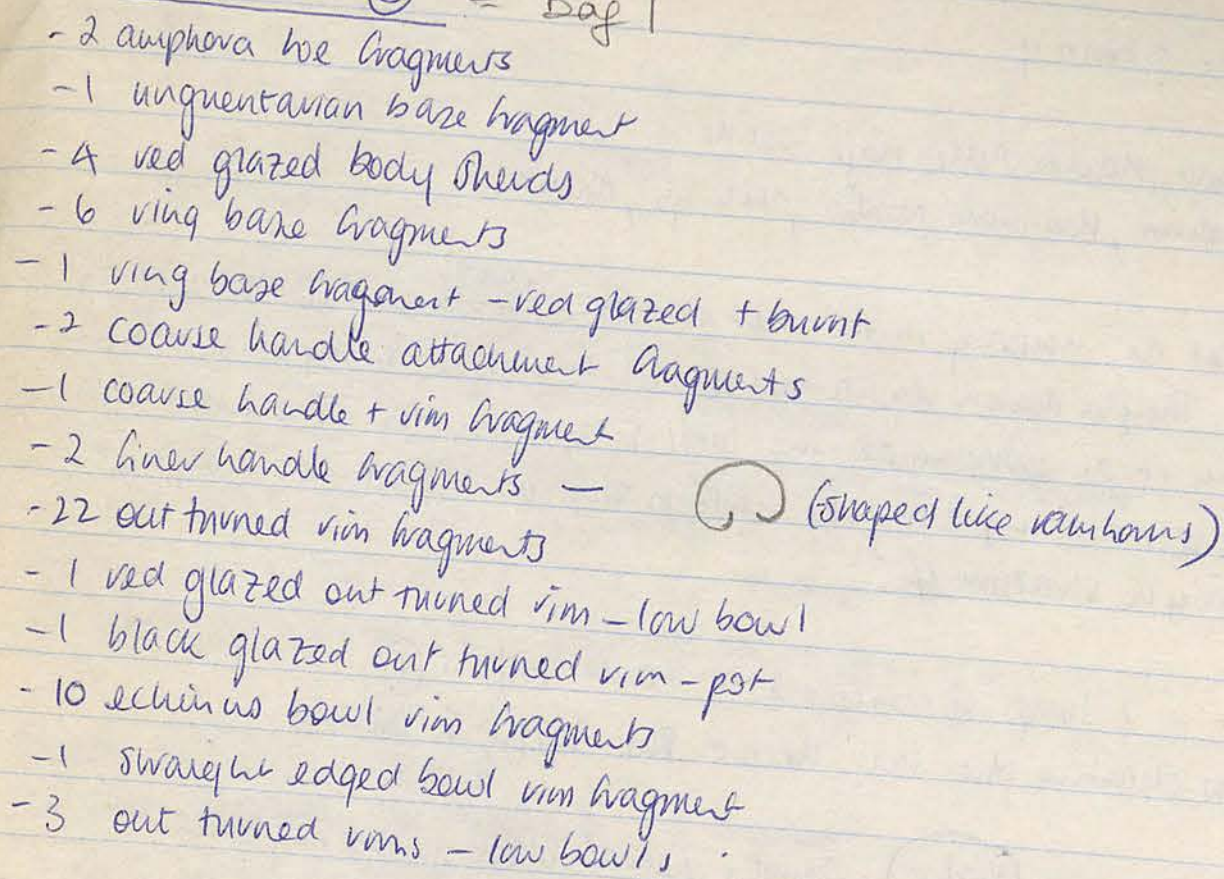 = Bag 1
- 2 amphora toe fragments
- 1 unguentarian base fragment
- 4 red glazed body sherds
- 6 ring base fragments
- 1 ring base fragment - red glazed + burnt
- 2 coarse handle attachment fragments
- 1 coarse handle + rim fragment
- 2 finer handle fragments — (shaped like ramhorns)
- 22 out turned rim fragments
- 1 red glazed out turned rim - low bowl
- 1 black glazed out turned rim - pot
- 10 echinus bowl rim fragments
- 1 straight edged bowl rim fragment
- 3 out turned rims - low bowls.